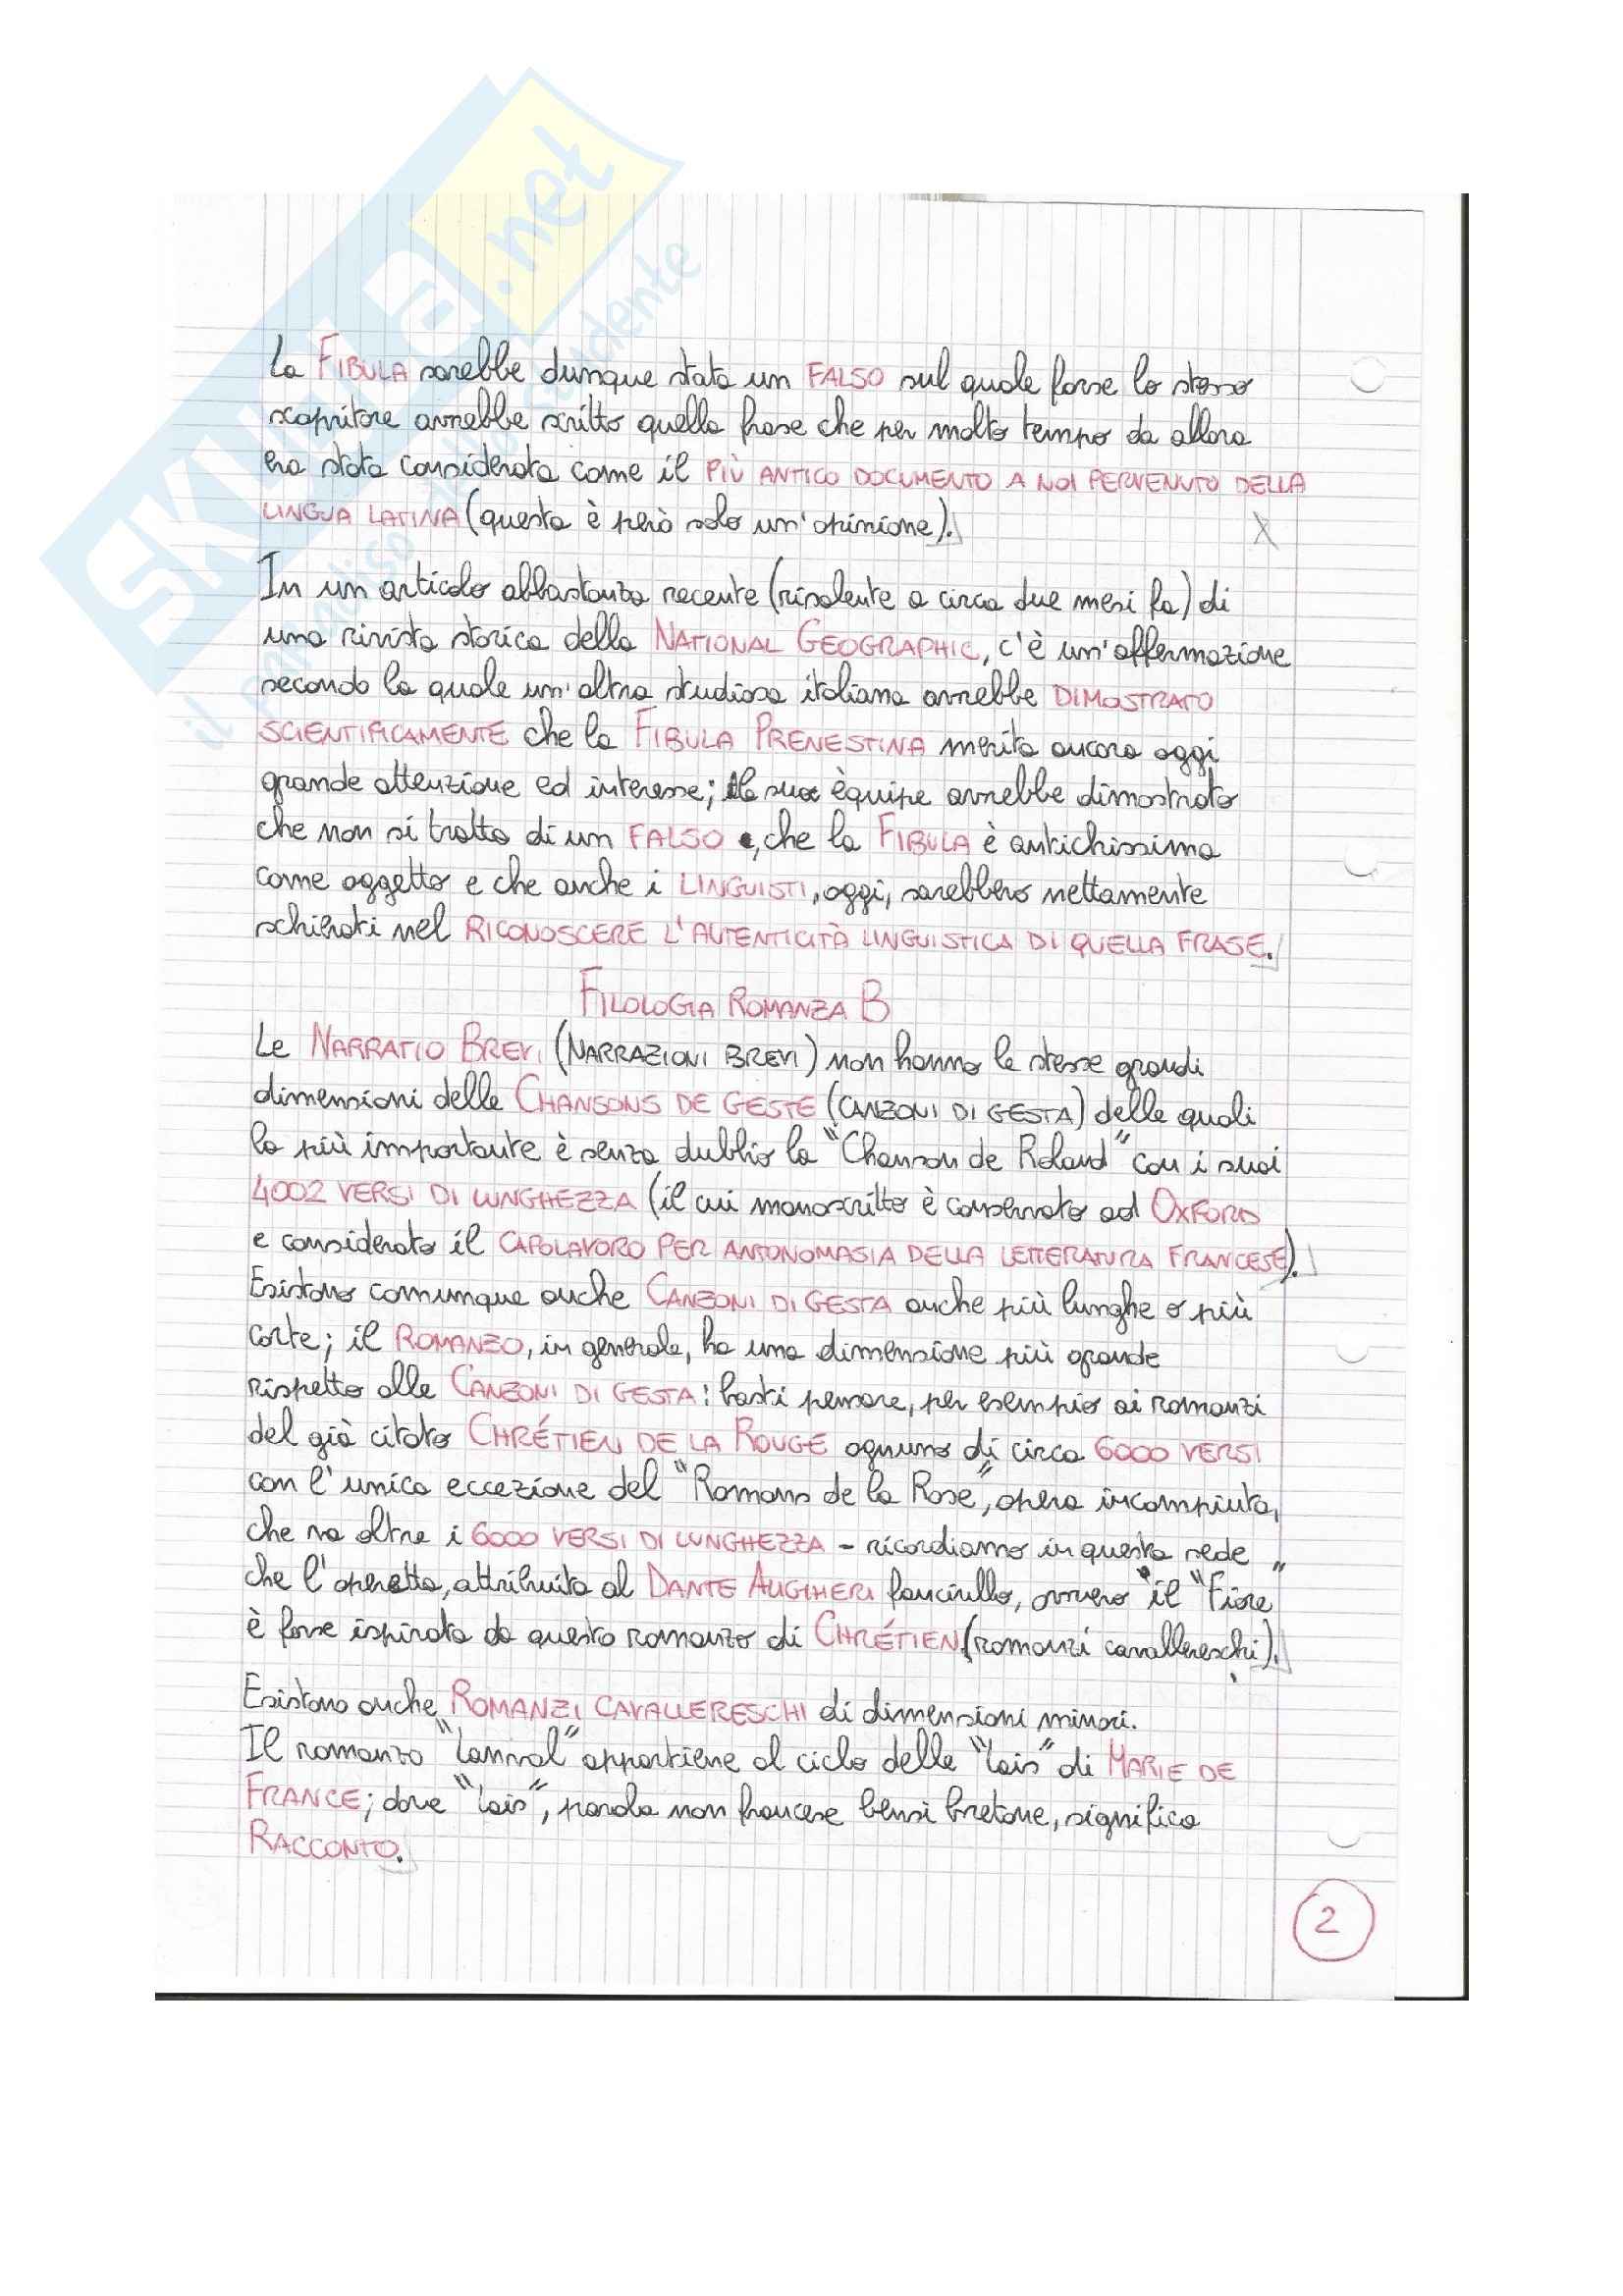 SKUOLA.net
il paradiso dello studente
La FIBULA sarebbe dunque stata un FALSO sul quale forse lo stesso
scopritore avrebbe scritto quella frase che per molto tempo da allora
era stata considerata come il PIÙ ANTICO DOCUMENTO A NOI PERVENUTO DELLA
LINGUA LATINA (questa è però solo un'opinione).
X
In un articolo abbastanza recente (risalente a circa due mesi fa) di
una rivista storica della NATIONAL GEOGRAPHIC, c'è un'affermazione
secondo la quale un'altra studiosa italiana avrebbe DIMOSTRATO
SCIENTIFICAMENTE che la FIBULA PRENESTINA merita ancora oggi
grande attenzione ed interesse; la sua èquipe avrebbe dimostrato
che non si tratta di un FALSO, che la FIBULA è antichissima
come oggetto e che anche i LINGUISTI, oggi, sarebbero nettamente
schierati nel RICONOSCERE L'AUTENTICITÀ LINGUISTICA DI QUELLA FRASE.
FILOLOGIA ROMANZA B
Le NARRATIO BREVI (NARRAZIONI BREVI) non hanno le stesse grandi
dimensioni delle CHANSONS DE GESTE (CANZONI DI GESTA) delle quali
la più importante è senza dubbio la "Chanson de Roland" con i suoi
4002 VERSI DI LUNGHEZZA (il cui manoscritto è conservato ad OXFORD
e considerato il CAPOLAVORO PER ANTONOMASIA DELLA LETTERATURA FRANCESE).
Esistono comunque anche CANZONI DI GESTA anche più lunghe o più
corte; il ROMANZO, in generale, ha una dimensione più grande
rispetto alle CANZONI DI GESTA: basti pensare, per esempio ai romanzi
del già citato CHRÉTIEN DE LA ROUGE ognuno di circa 6000 VERSI
con l'unica eccezione del "Romans de la Rose", opera incompiuta,
che va oltre i 6000 VERSI DI LUNGHEZZA - ricordiamo in questa sede
che l'operetta, attribuita al DANTE ALIGHIERI fanciullo, ovvero il "Fiore"
è forse ispirata da questo romanzo di CHRÉTIEN (romanzi cavallereschi).
Esistono anche ROMANZI CAVALLERESCHI di dimensioni minori.
Il romanzo "Lanval" appartiene al ciclo delle "lais" di MARIE DE
FRANCE; dove "lais", parola non francese bensì bretone, significa
RACCONTO.
2